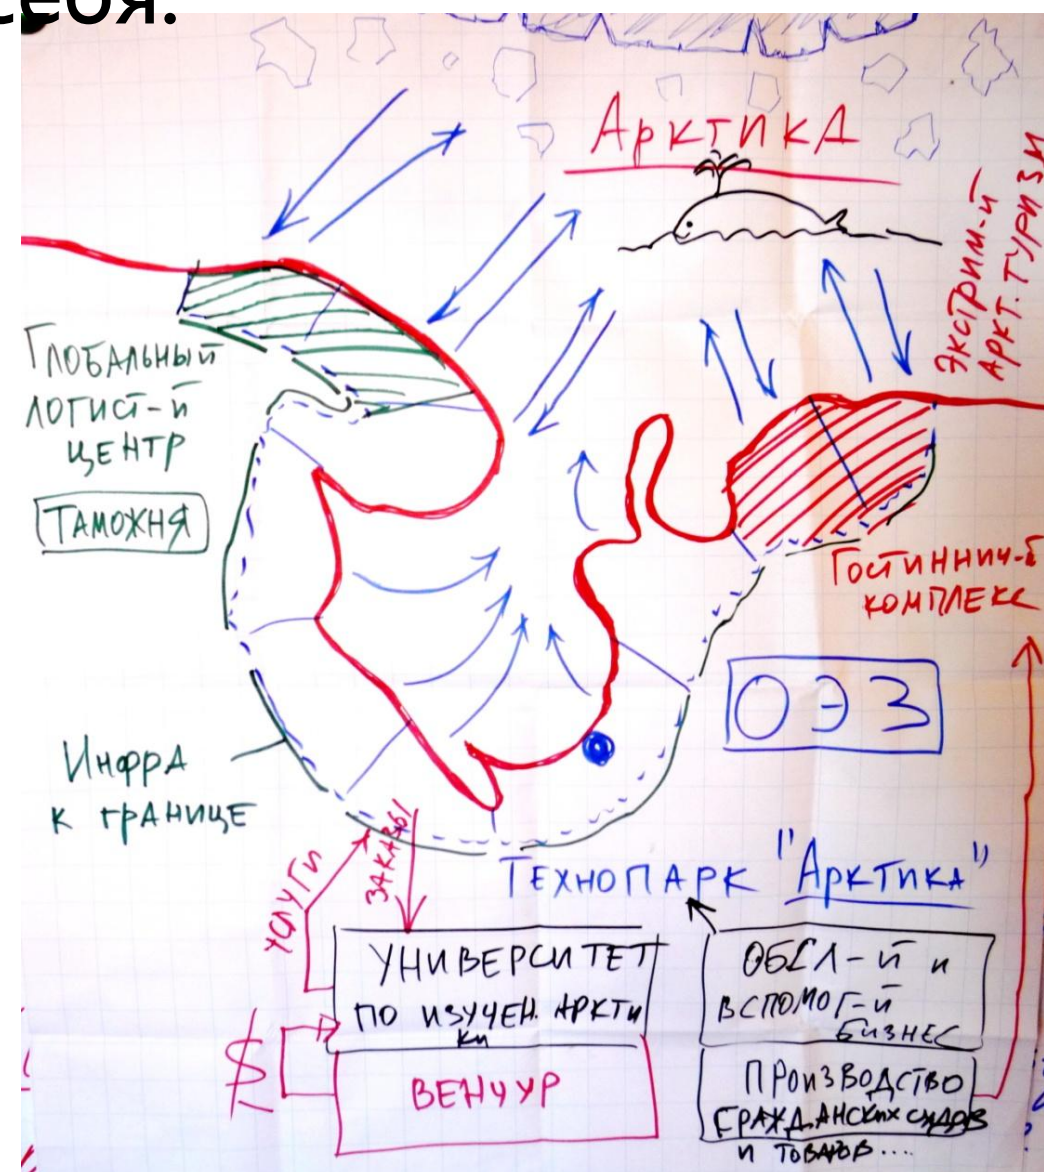 себя.
Арктика
Экстрим-й
Аркт. туризм
Глобальный
логист-й
центр
Таможня
Гостиннич-й
комплекс
ОЭЗ
Инфра
к границе
Технопарк "Арктика"
услуги
заказы
Университет
по изучен. Аркти
ки
Венчур
$
Обсл-й и
вспомог-й
бизнес
Производство
гражданских судов
и товаров....